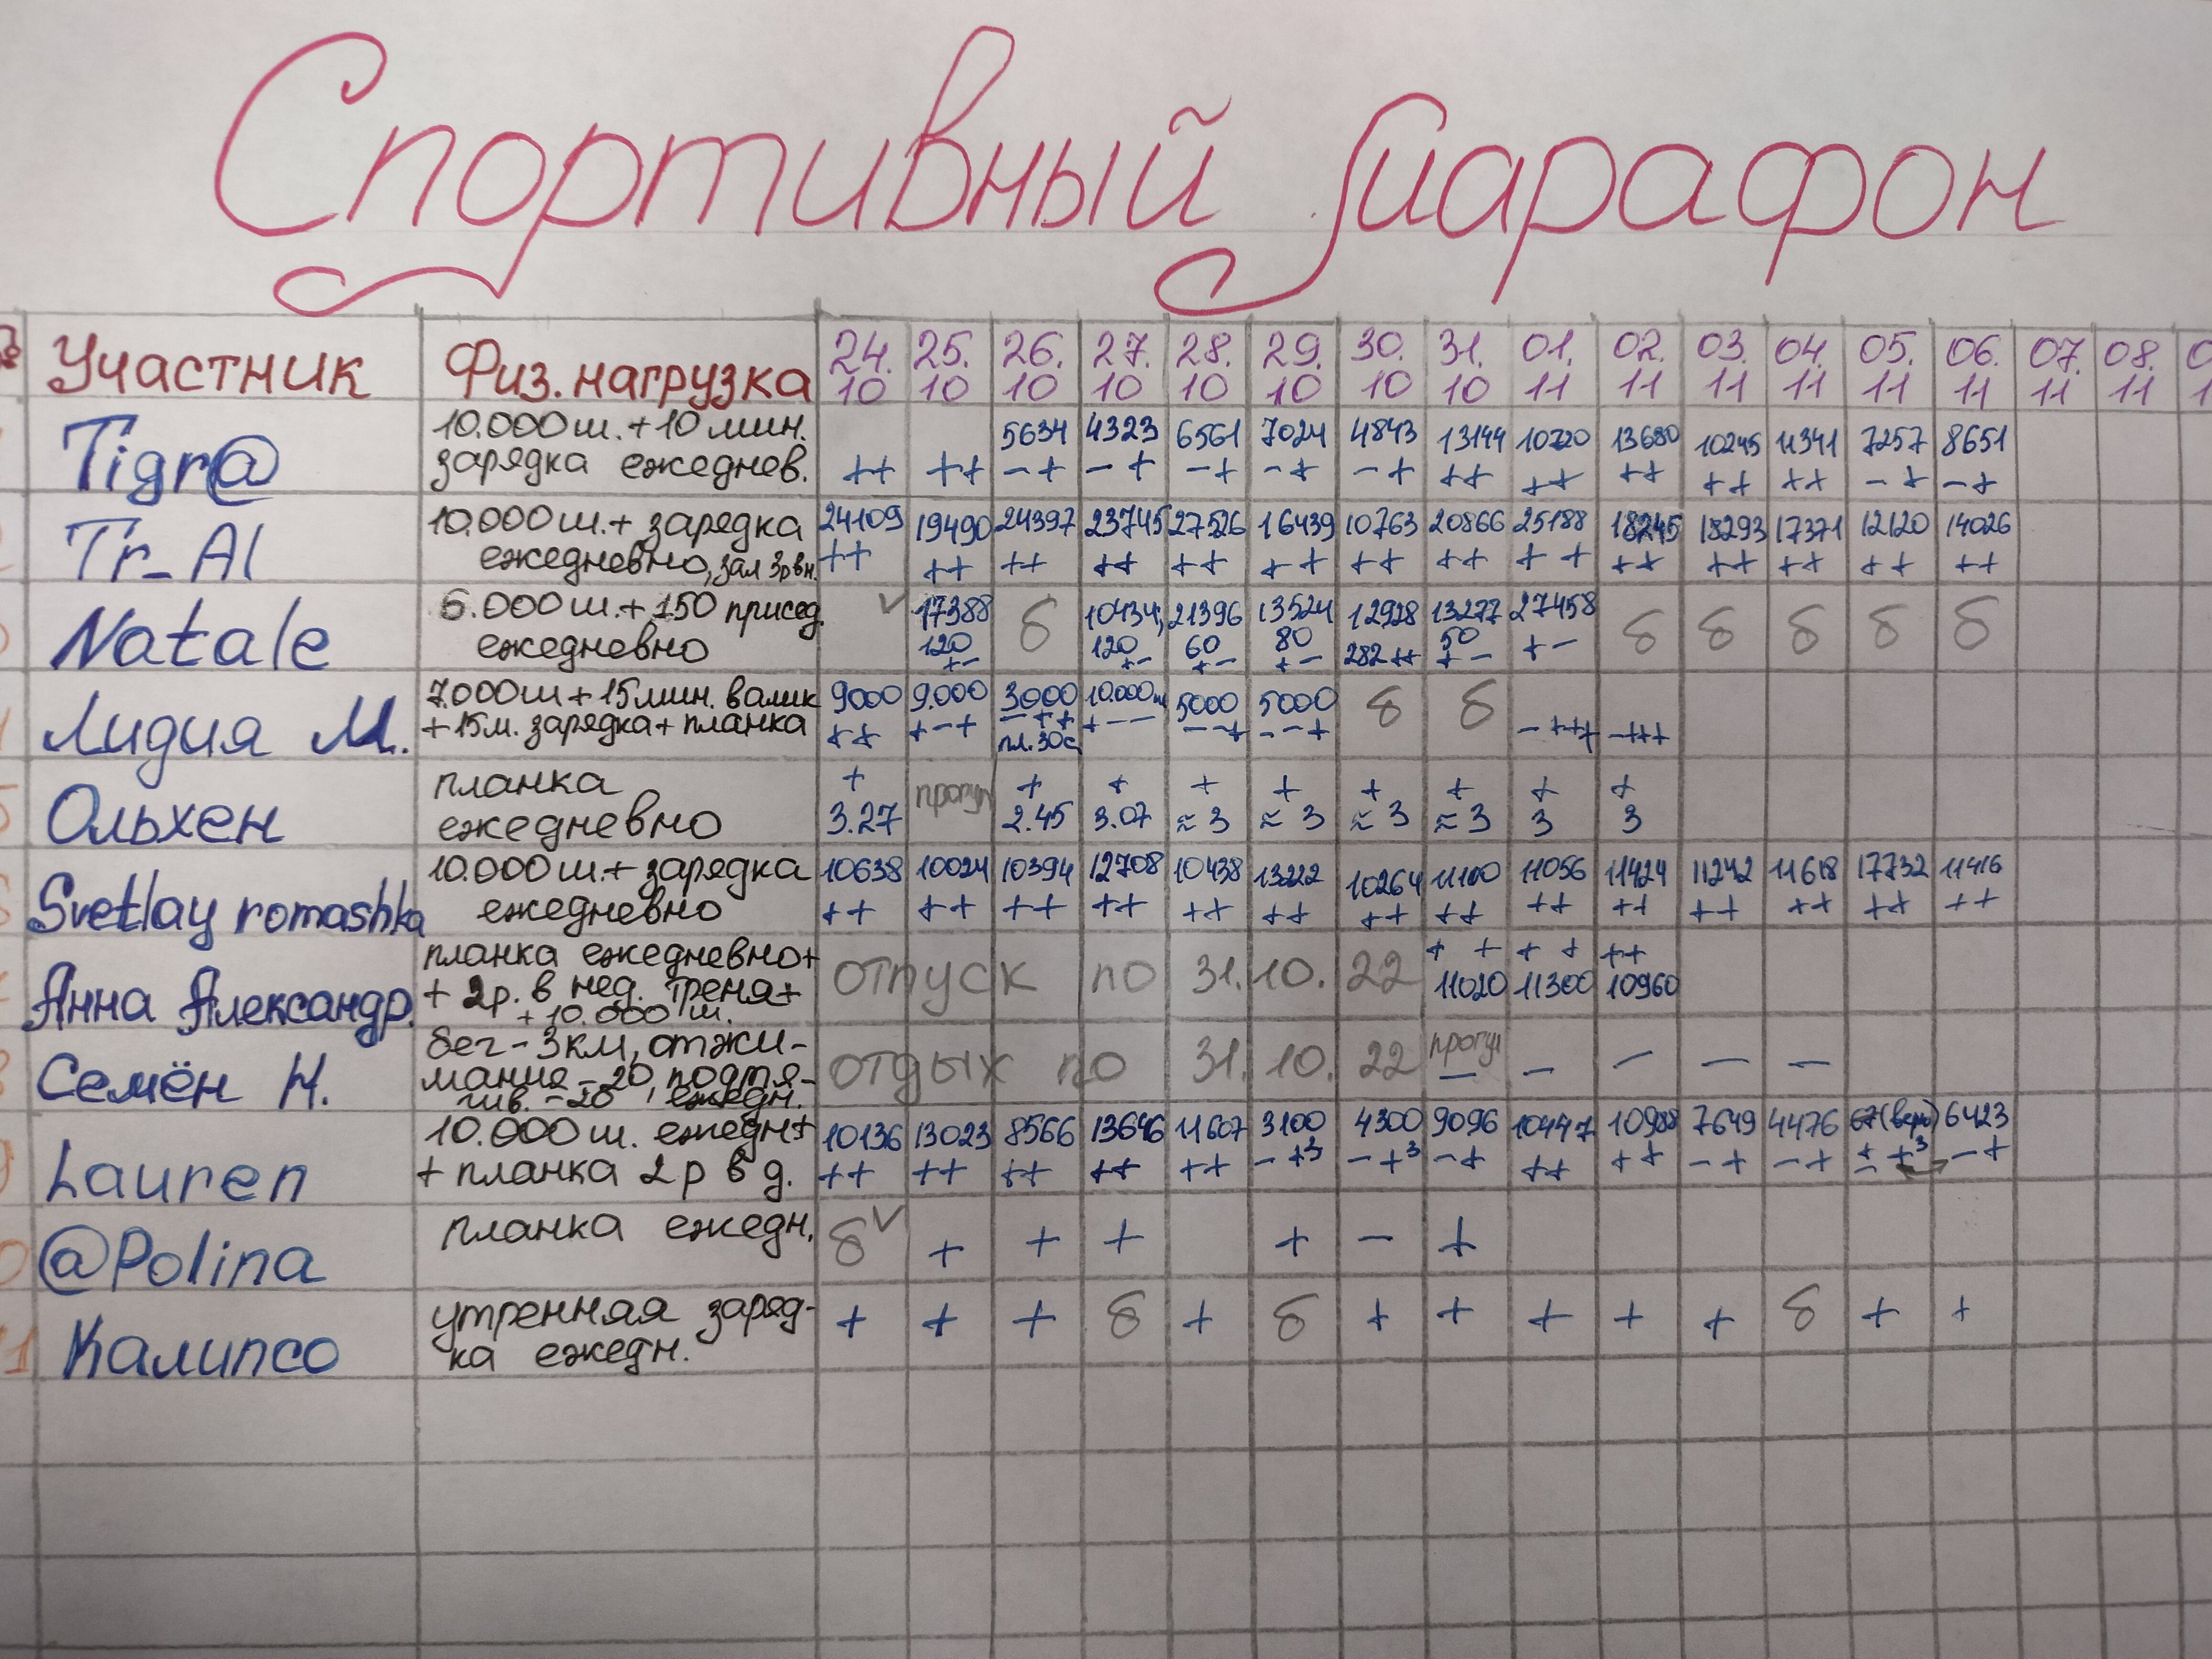 Спортивный марафон
№ Участник Физ. нагрузка 24.10 25.10 26.10 27.10 28.10 29.10 30.10 31.10 01.11 02.11 03.11 04.11 05.11 06.11 07.11 08.11
10.000 ш. + 10 мин. 5634 4323 6561 7024 4843 13144 10720 13680 10245 11341 7257 8651
Tigr@ зарядка ежеднев. ++ ++ -+ -+ -+ -+ -+ ++ ++ ++ ++ ++ -+ -+
10.000 ш. + зарядка 24109 19490 24397 23745 27526 16439 10763 20866 25188 18245 18293 17371 12120 14026
Tr_Al ежедневно, зал 3р вн. ++ ++ ++ ++ ++ ++ ++ ++ ++ ++ ++ ++ ++ ++
6.000 ш. + 150 присед. ✓ 17388 б 10434, 21396 13524 12928 13277 27458 б б б б б
Natale ежедневно 120 +- 120 +- 60 +- 80 +- 282 ++ 50 +- +-
7000 ш + 15 мин. валик 9000 9.000 3000 10.000 ш 5000 5000 б б
Лидия М. + 15 м. зарядка + планка ++ +-+ -++ +-- --+ --+ -+++ -+++
пл. 30с
планка + прогул + + + + + + + +
Ольхен ежедневно 3.27 2.45 3.07 ≈3 ≈3 ≈3 ≈3 3 3
10.000 ш. + зарядка 10638 10024 10394 12708 10438 13222 10264 11100 11056 11424 11242 11618 17732 11416
Svetlay romashka ежедневно ++ ++ ++ ++ ++ ++ ++ ++ ++ ++ ++ ++ ++ ++
планка ежедневно + ++ ++ ++
Анна Александр. + 2р. в нед. треня + отпуск по 31.10.22 11020 11300 10960
+ 10.000 ш.
бег - 3км, отжи- прогул
Семён Н. мания - 20, подтя- отдых по 31.10.22 - - - - -
гив. - 20, ежедн.
10.000 ш. ежедн + 10136 13023 8566 13646 11607 3100 4300 9096 10447 10988 7649 4476 67(верю) 6423
Lauren + планка 2р в д. ++ ++ ++ ++ ++ -+3 -+3 -+ ++ ++ -+ -+ ±+3 -+
@Polina планка ежедн. б ✓ + + + + - +
11 Калипсо утренняя заряд- + + + б + б + + + + + б + +
ка ежедн.